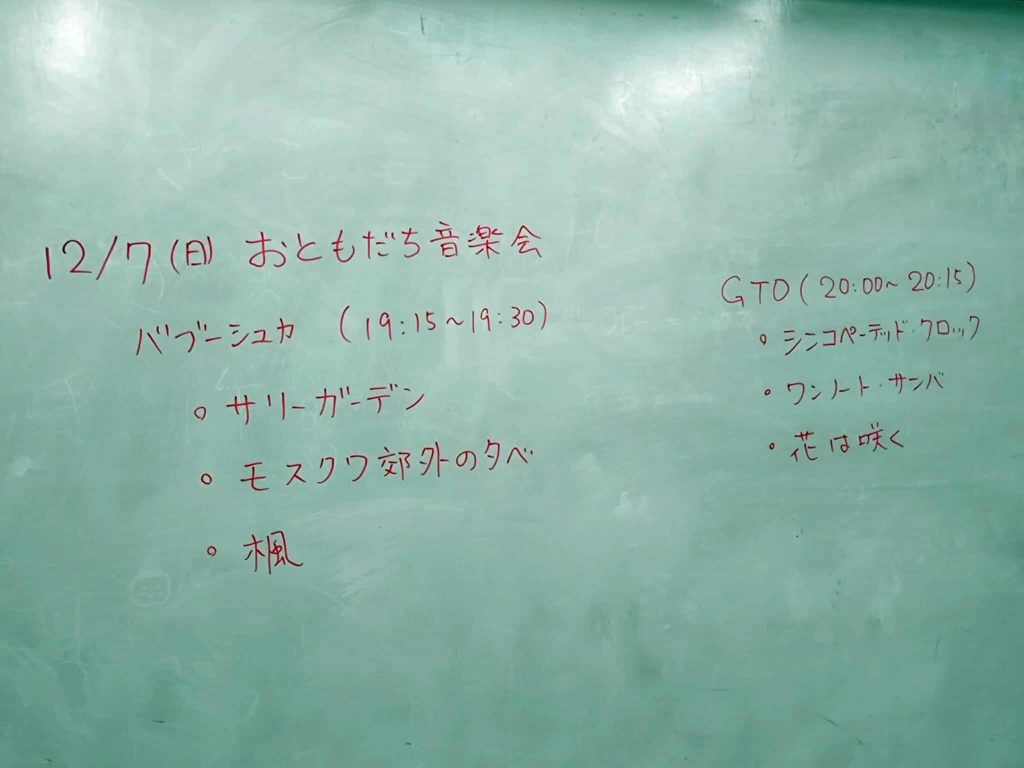 12/7(日) おともだち音楽会
バブーシュカ (19:15~19:30)
• サリーガーデン
• モスクワ郊外の夕べ
• 楓
GTO (20:00~20:15)
• シンコペーテッド・クロック
• ワンノート・サンバ
• 花は咲く